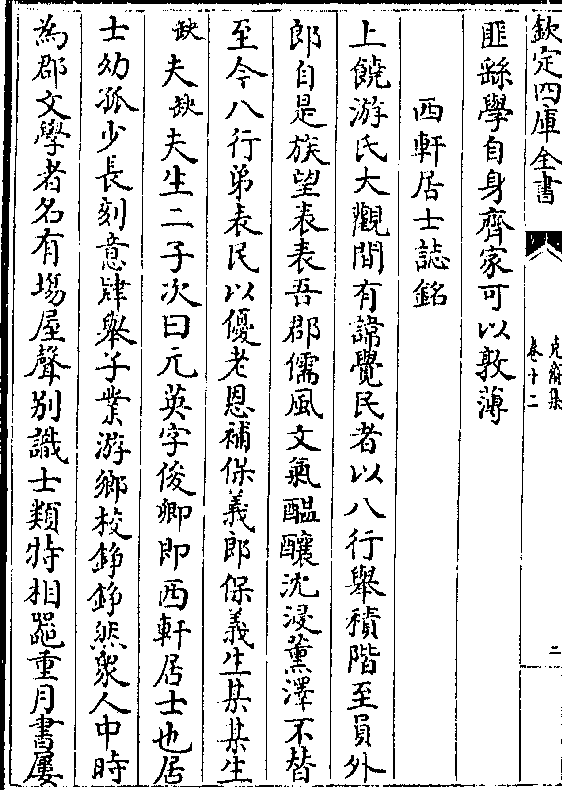 欽定四庫全書
克齋集
卷十二
二
匪繇學自身齊家可以敦薄
西軒居士誌銘
上饒游氏大觀間有諱覺民者以八行舉積階至員外
郎自是族望表表吾郡儒風文氣醖釀沈浸薰澤不替
至今八行弟表民以優老恩補保義郎保義生某某生
缺夫缺夫生二子次曰元英字俊卿即西軒居士也居
士幼孤少長刻意肄舉子業游鄉校錚錚然衆人中時
為郡文學者名有塲屋聲别識士類特相器重月書屢